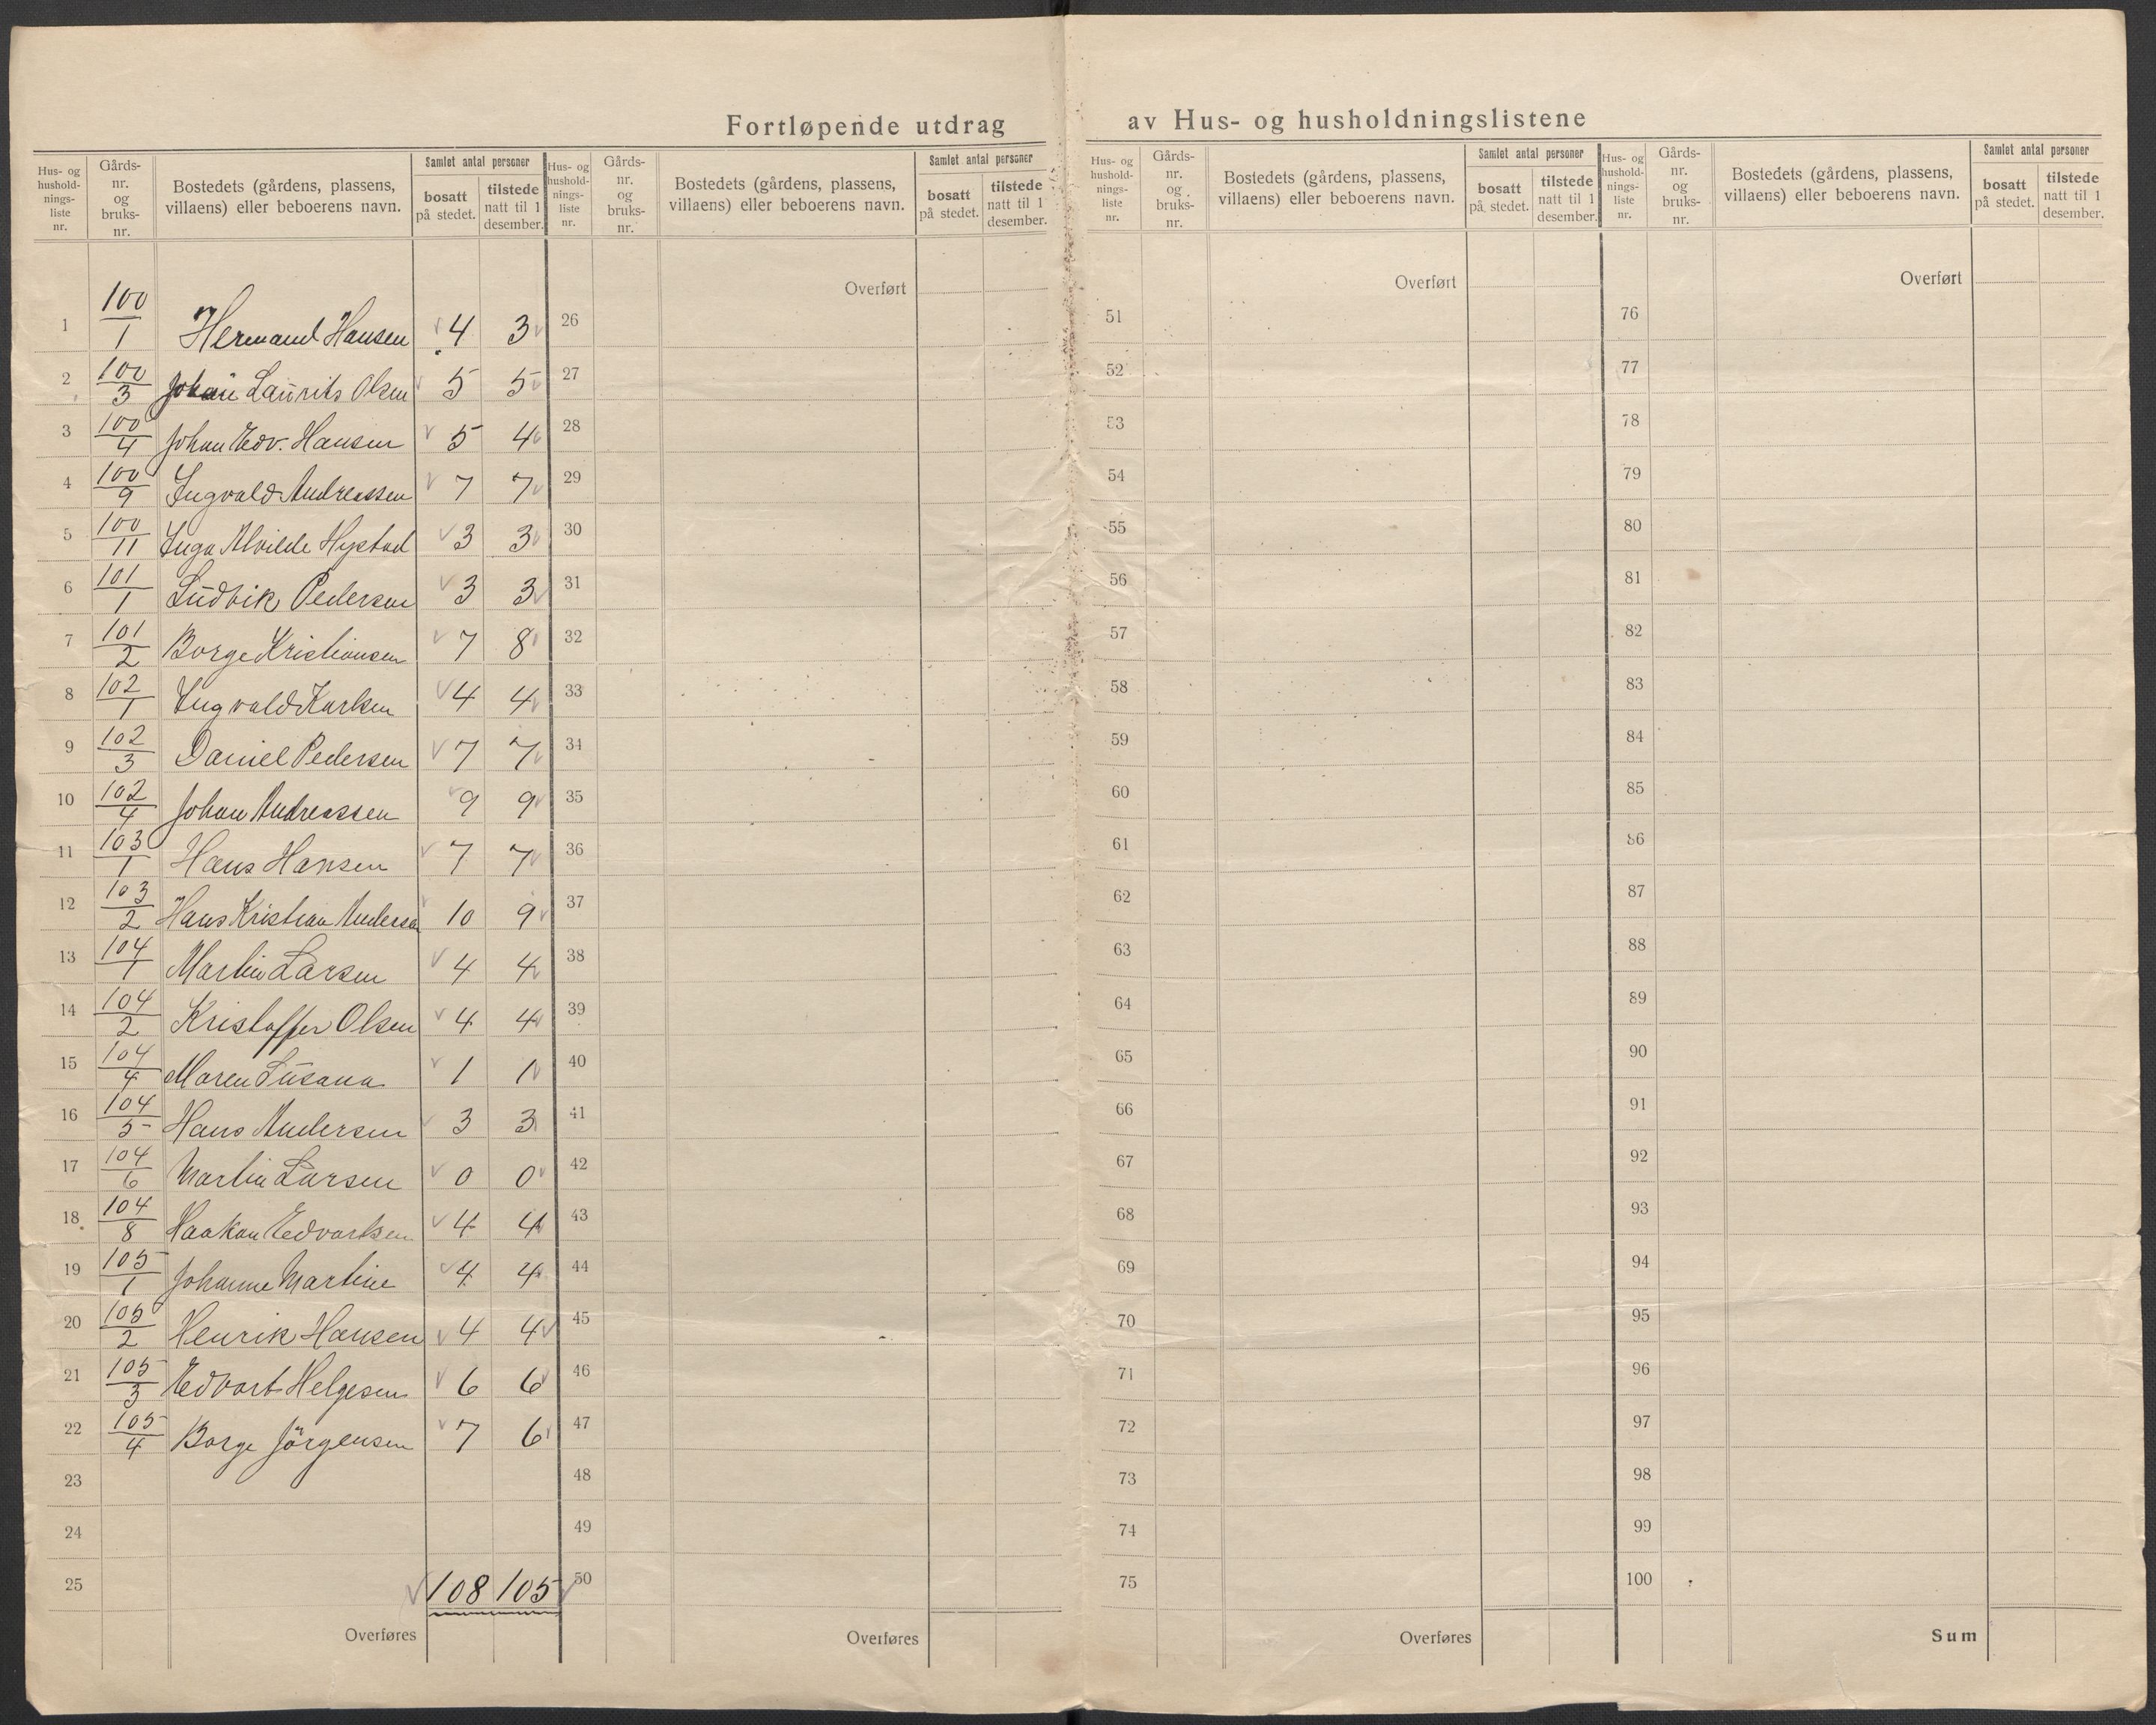 Fortløpende utdrag av Hus- og husholdningslistene
Hus- og hushold-nings-liste nr. | Gårds-nr. og bruks-nr. | Bostedets (gårdens, plassens, villaens) eller beboerens navn. | Samlet antal personer | bosatt på stedet. | tilstede natt til 1 desember.
1 100/1 Hermand Hansen 4 3
2 100/3 Johan Laurits Olsen 5 5
3 100/4 Johan Edv. Hansen 5 4
4 100/9 Ingvald Andreassen 7 7
5 100/11 Inga Alvilde Hystad 3 3
6 101/1 Ludvik Pedersen 3 3
7 101/2 Borge Kristiansen 7 8
8 102/1 Ingvald Karlsen 4 4
9 102/3 Daniel Pedersen 7 7
10 102/4 Johan Andreassen 9 9
11 103/1 Hans Hansen 7 7
12 103/2 Hans Kristian Andersen 10 9
13 104/1 Martin Larsen 4 4
14 104/2 Kristoffer Olsen 4 4
15 104/4 Maren Susana 1 1
16 104/5 Hans Andersen 3 3
17 104/6 Martin Larsen 0 0
18 104/8 Haakon Edvartsen 4 4
19 105/1 Johanne Martine 4 4
20 105/2 Henrik Hansen 4 4
21 105/3 Edvart Helgesen 6 6
22 105/4 Borge Jörgensen 7 6
23
24
25 108 105
Overføres
Hus- og hushold-nings-liste nr. | Gårds-nr. og bruks-nr. | Bostedets (gårdens, plassens, villaens) eller beboerens navn. | Samlet antal personer | bosatt på stedet. | tilstede natt til 1 desember.
Overført
26
27
28
29
30
31
32
33
34
35
36
37
38
39
40
41
42
43
44
45
46
47
48
49
50
Overføres
Hus- og hushold-nings-liste nr. | Gårds-nr. og bruks-nr. | Bostedets (gårdens, plassens, villaens) eller beboerens navn. | Samlet antal personer | bosatt på stedet. | tilstede natt til 1 desember.
Overført
51
52
53
54
55
56
57
58
59
60
61
62
63
64
65
66
67
68
69
70
71
72
73
74
75
Overføres
Hus- og hushold-nings-liste nr. | Gårds-nr. og bruks-nr. | Bostedets (gårdens, plassens, villaens) eller beboerens navn. | Samlet antal personer | bosatt på stedet. | tilstede natt til 1 desember.
Overført
76
77
78
79
80
81
82
83
84
85
86
87
88
89
90
91
92
93
94
95
96
97
98
99
100
Sum